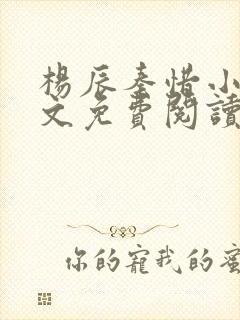 楊辰秦惜小
文免費閱讀
你的寵我的蜜